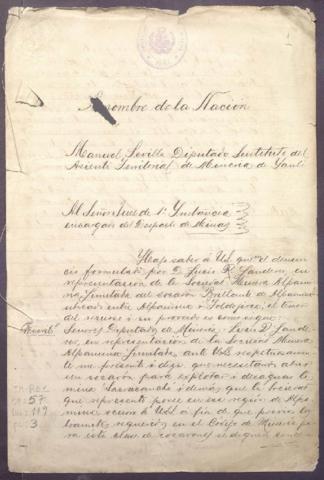 A nombre de la Nación
Manuel Sevilla Diputado Sustituto del
Asiento Territorial de Mineria de Yauli
Al Señor Juez de 1ª Instancia
encargado del Despacho de Minas
Hago saber á Ud. que el denun
cio formulado por D. Lucio R. en
representación de la Sociedad Minera Alpami
na Limitada del socavón Brillante de Alpamina
ubicado entre Alpamina y el tenor
del recurso i su proveido es como sigue:
Señor Diputado de Mineria
en representación de la Sociedad Minera
Alpamina Limitada, ante Ud. respetuosamen
te me presento i digo: que necesitando abrir
un socavón para explotar i desaguar la
mina i demás que la Sociedad
que represento posee en esa región de Alpa
mina ocurro á Ud. á fin de que previos los
tramites requeridos en el Código de Mineria pa
ra esta clase de socavones se digne
57
119
3